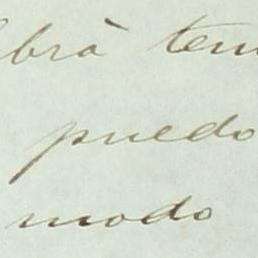 brà ten
puedo
modo